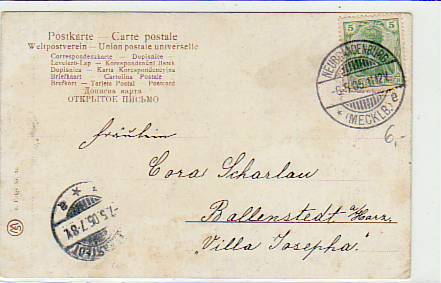 Postkarte — Carte postale
Weltpostverein — Union postale universelle
Correspondenzkarte - Dopisnice
Levelező-Lap — Korespondenční lístek
Dopisnica — Karta Korespondencyjna
Briefkaart — Cartolina Postale
Brefkort — Tarjeta Postal Postcard
Дописна карта
ОТКРЫТОЕ ПИСЬМО
5 5
NEUBRANDENBURG
* (MECKLB.) a
6,-
Fräulein
Cora Scharlau
Ballenstedt a/Harz.
"Villa Josepha."